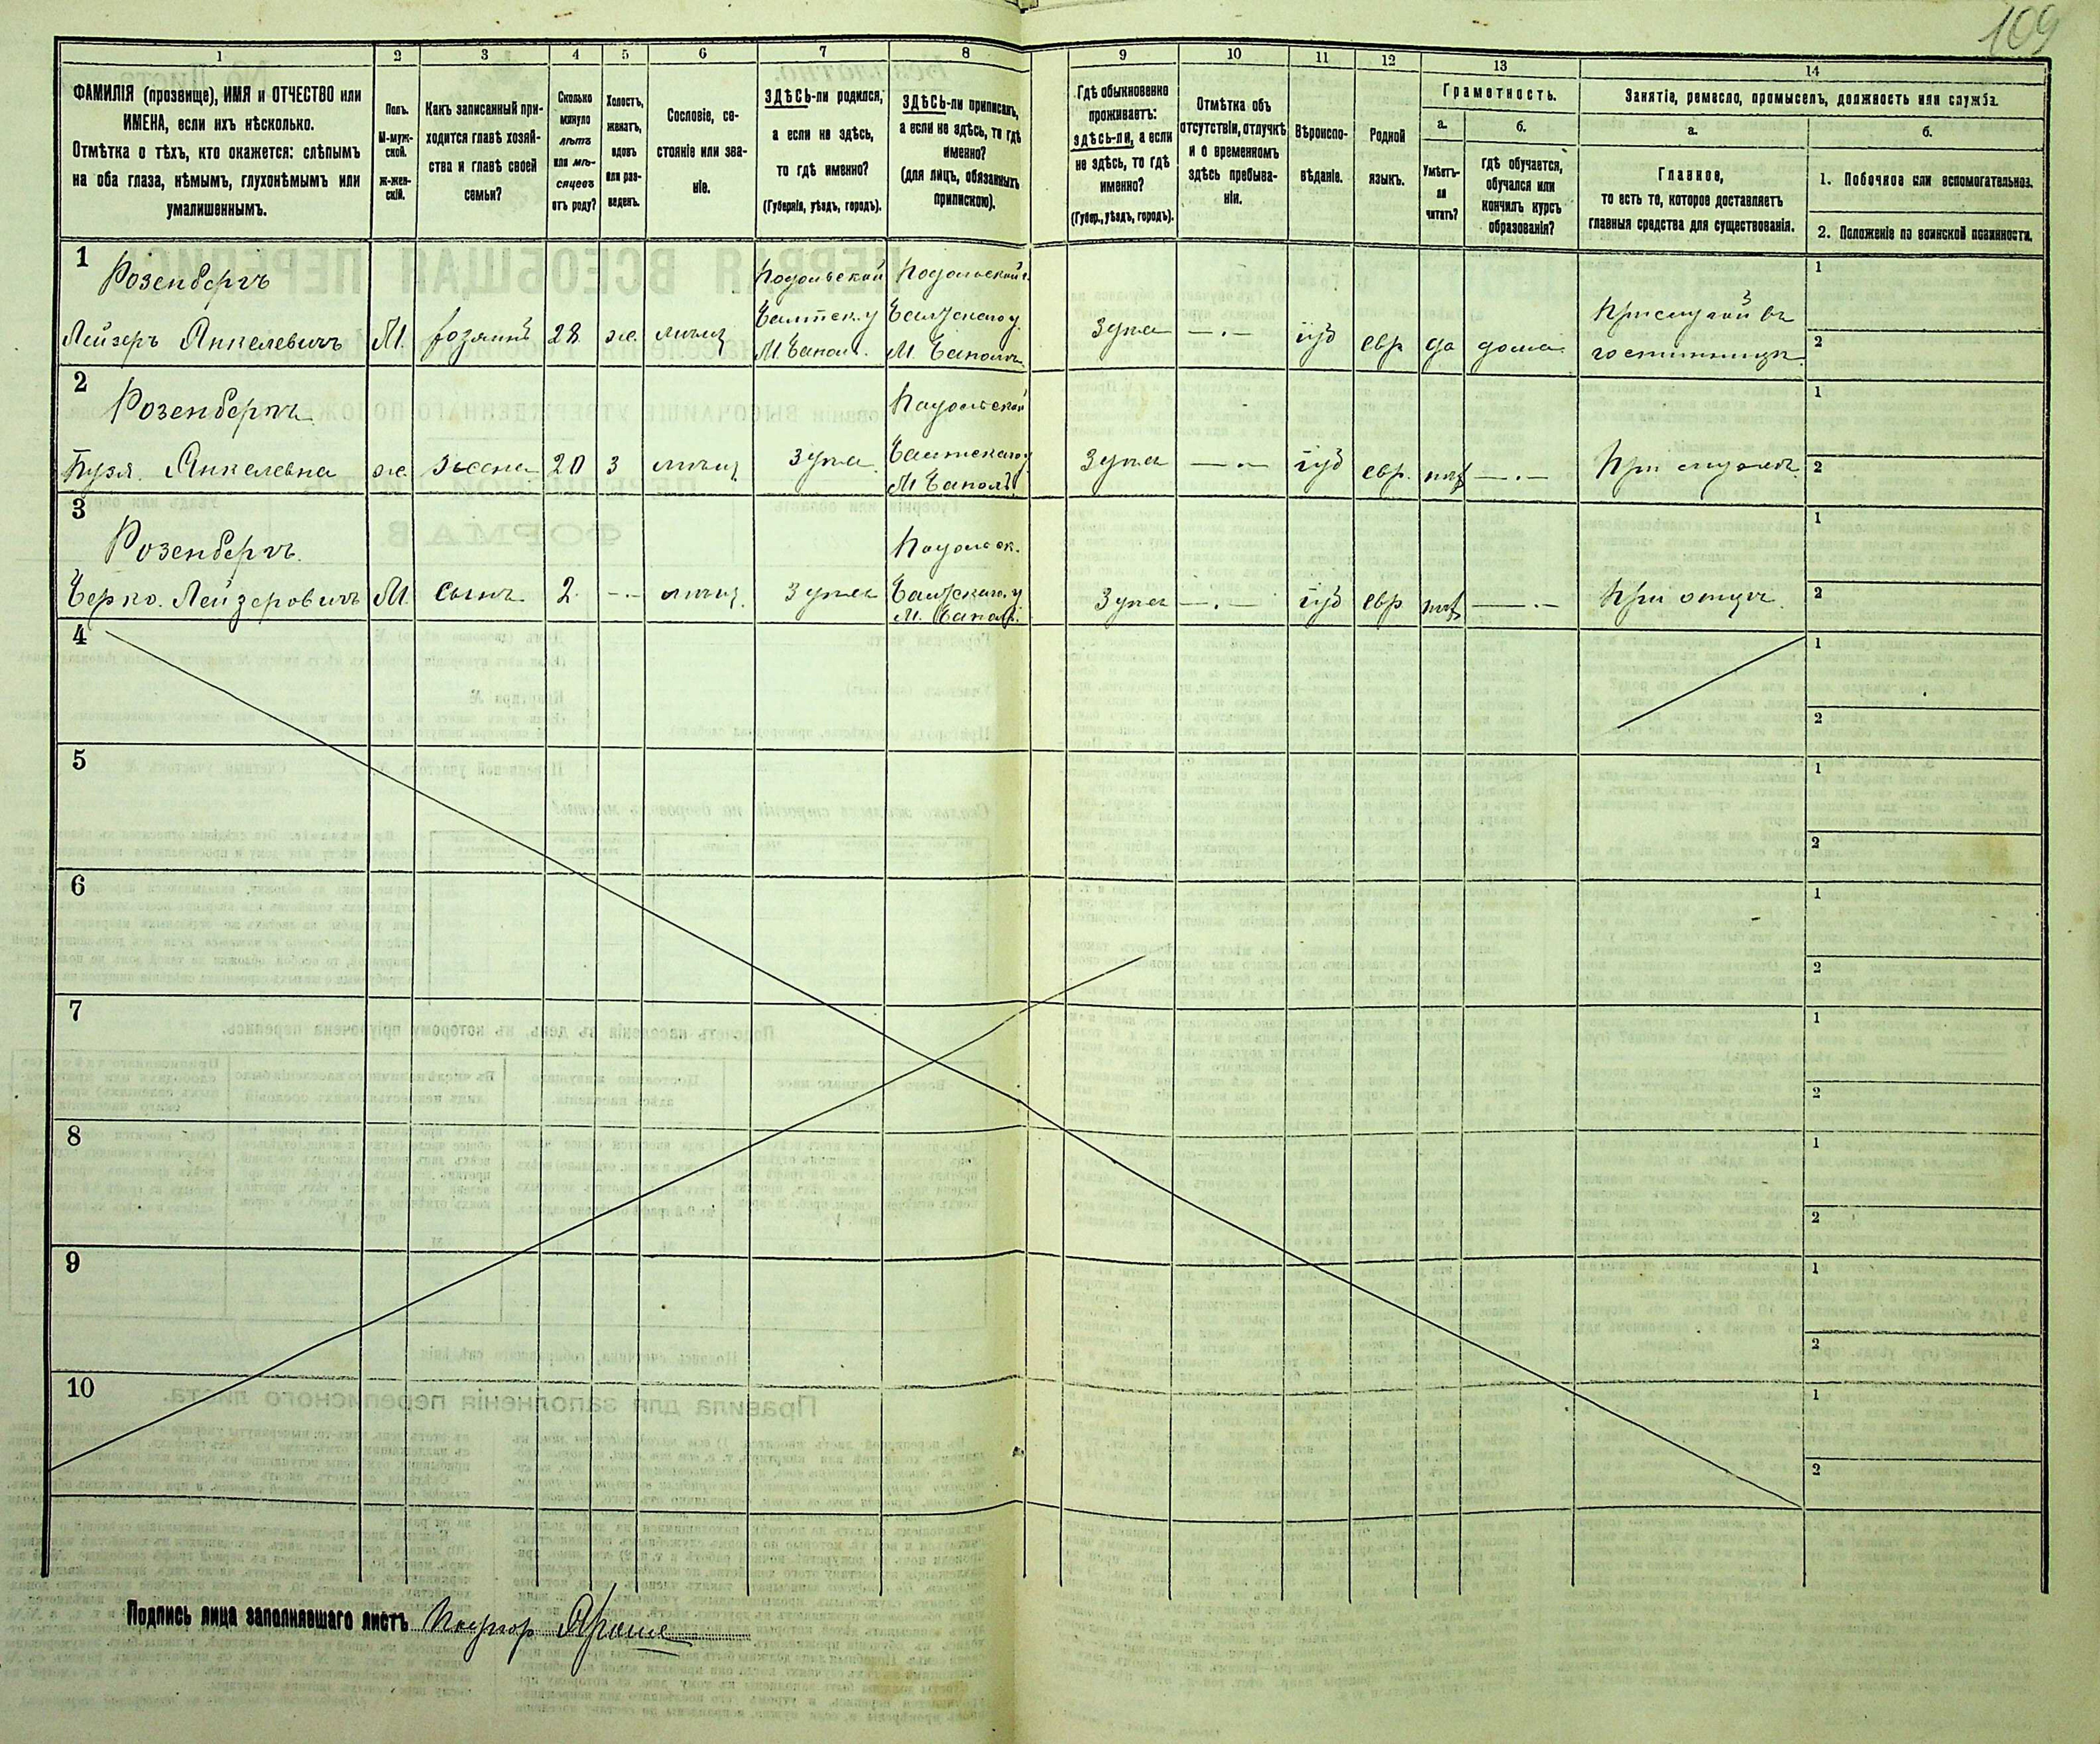 109
1 2 3 4 5 6 7 8 9 10 11 12 13 14
ФАМИЛІЯ (прозвище), ИМЯ и ОТЧЕСТВО или
ИМЕНА, если ихъ нѣсколько.
Отмѣтка о тѣхъ, кто окажется: слѣпымъ
на оба глаза, нѣмымъ, глухонѣмымъ или
умалишеннымъ.
Полъ.
М-муж-
ской.
ж-жен-
скій.
Какъ записанный при-
ходится главѣ хозяй-
ства и главѣ своей
семьи?
Сколько
минуло
лѣтъ
или мѣ-
сяцевъ
отъ роду?
Холостъ,
женатъ,
вдовъ
или раз-
веденъ.
Сословіе, со-
стояніе или зва-
ніе.
ЗДѢСЬ-ли родился,
а если не здѣсь,
то гдѣ именно?
(Губернія, уѣздъ, городъ).
ЗДѢСЬ-ли приписанъ,
а если не здѣсь, то гдѣ
именно?
(для лицъ, обязанныхъ
припискою).
Гдѣ обыкновенно
проживаетъ:
здѣсь-ли, а если
не здѣсь, то гдѣ
именно?
(Губер., уѣздъ, городъ).
Отмѣтка объ
отсутствіи, отлучкѣ
и о временномъ
здѣсь пребыва-
ніи.
Вѣроиспо-
вѣданіе.
Родной
языкъ.
Грамотность.
а.
Умѣетъ-
ли
читать?
б.
гдѣ обучается,
обучался или
кончилъ курсъ
образованія?
Занятіе, ремесло, промыселъ, должность или служба.
а.
Главное,
то есть то, которое доставляетъ
главныя средства для существованія.
б.
1. Побочное или вспомогательное.
2. Положеніе по воинской повинности.
1
Розенбергъ
Лейзеръ Янкелевичъ М. хозяинъ 28 же.
Подольской
Балтск. у
М.
Подольской г.
Балтскаго у.
М.
здѣсь —.— іуд евр да дома
Прислугой въ
гостинницѣ
1
2
2
Розенбергъ
Янкелевна же. жена 20 з
здѣсь
Подольской
Балтскаго у
М
здѣсь —.— іуд евр. нѣт —.— При мужѣ
1
2
3
Розенбергъ.
Берко. Лейзеровичъ М. сынъ 2 -.- здѣсь
Подольск.
Балтскаго. у
М.
здѣсь —.— іуд евр нѣт —.— При отцѣ
1
2
4
1
2
5
1
2
6
1
2
7
1
2
8
1
2
9
1
2
10
1
2
Подпись лица заполнявшаго листъ